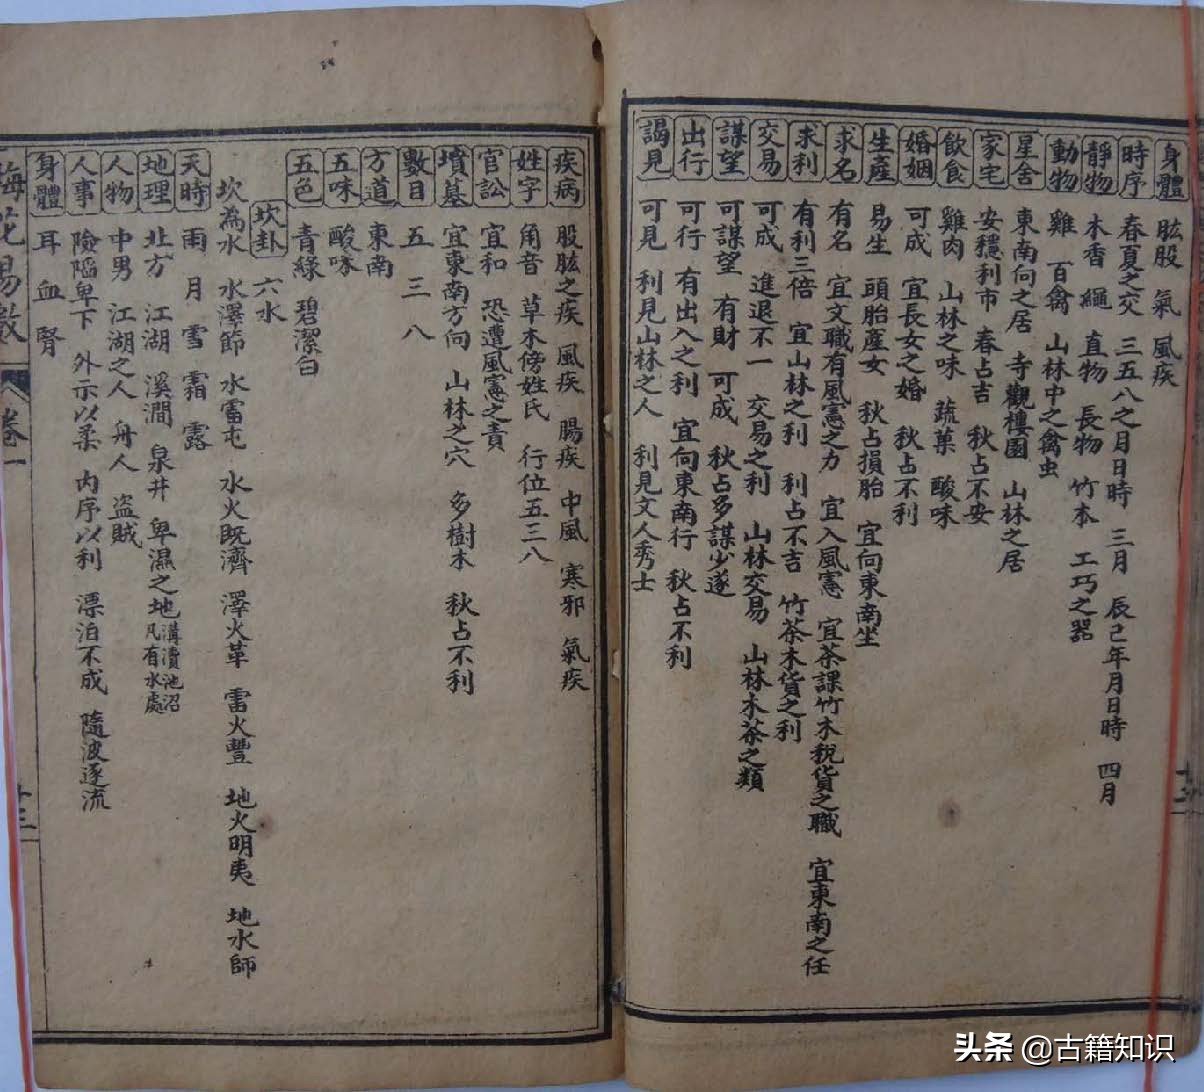 身體 肱股 氣 風疾
時序 春夏之交 三五八之月日時 三月 辰巳年月日時 四月
靜物 木香 繩 直物 長物 竹木 工巧之器
動物 雞 百禽 山林中之禽虫
星舍 東南向之居 寺觀樓園 山林之居
家宅 安穩利市 春占吉 秋占不安
飲食 雞肉 山林之味 蔬菓 酸味
婚姻 可成 宜長女之婚 秋占不利
生產 易生 頭胎產女 秋占損胎 宜向東南坐
求名 有名 宜文職有風憲之力 宜入風憲 宜茶課竹木稅貨之職 宜東南之任
求利 有利三倍 宜山林之利 利占不吉 竹茶木貨之利
交易 可成 進退不一 交易之利 山林交易 山林木茶之類
謀望 可謀望 有財 可成 秋占多謀少遂
出行 可行 有出入之利 宜向東南行 秋占不利
謁見 可見 利見山林之人 利見文人秀士
疾病 股肱之疾 風疾 腸疾 中風 寒邪 氣疾
姓字 角音 草木傍姓氏 行位五三八
官訟 宜和 恐遭風憲之責
墳墓 宜東南方向 山林之穴 多樹木 秋占不利
數目 五 三 八
方道 東南
五味 酸味
五色 青綠 碧潔白
坎卦 六水
坎為水 水澤節 水雷屯 水火既濟 澤火革 雷火豐 地火明夷 地水師
天時 雨 月 雪 霜 露
地理 北方 江湖 溪澗 泉井 卑濕之地 溝瀆池沼凡有水處
人物 中男 江湖之人 舟人 盜賊
人事 險陷卑下 外示以柔 內序以利 漂泊不成 隨波逐流
身體 耳 血 腎
梅花易數 卷一 十三
头条 @古籍知识